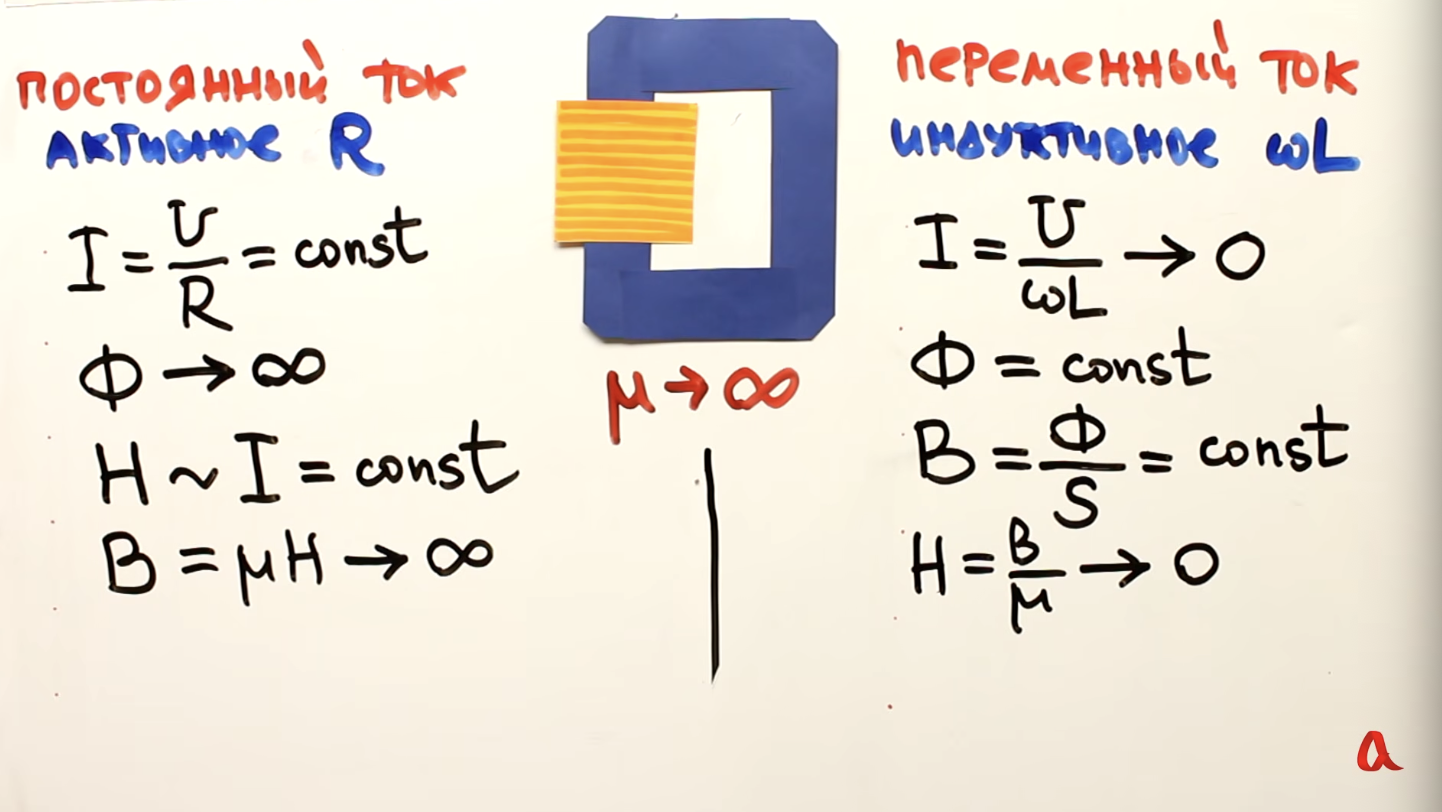 ПОСТОЯННЫЙ ТОК
АКТИВНОЕ R
I = U/R = const
Ф → ∞
H ~ I = const
B = μH → ∞
μ → ∞
ПЕРЕМЕННЫЙ ТОК
ИНДУКТИВНОЕ ωL
I = U/ωL → 0
Ф = const
B = Ф/S = const
H = B/μ → 0
a